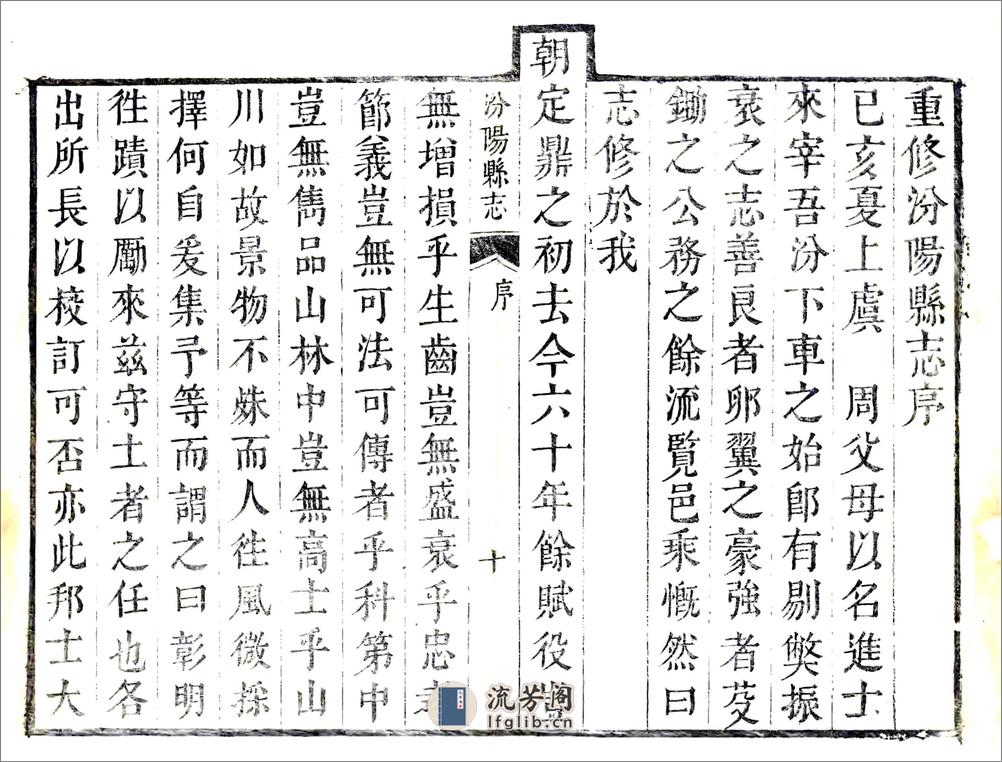 重修汾陽縣志序
已亥夏上虞　周父母以名進士
來宰吾汾下車之始卽有剔弊振
衰之志善良者卵翼之豪強者芟
鋤之公務之餘流覽邑乘慨然曰
志修於我
朝定鼎之初去今六十年餘賦役豈
汾陽縣志
序
十
無增損乎生齒豈無盛衰乎忠孝
節義豈無可法可傳者乎科第中
豈無雋品山林中豈無高士乎山
川如故景物不殊而人徃風微採
擇何自爰集予等而謂之曰彰明
徃蹟以勵來茲守土者之任也各
出所長以校訂可否亦此邦士大
流芳阁
lfglib.cn